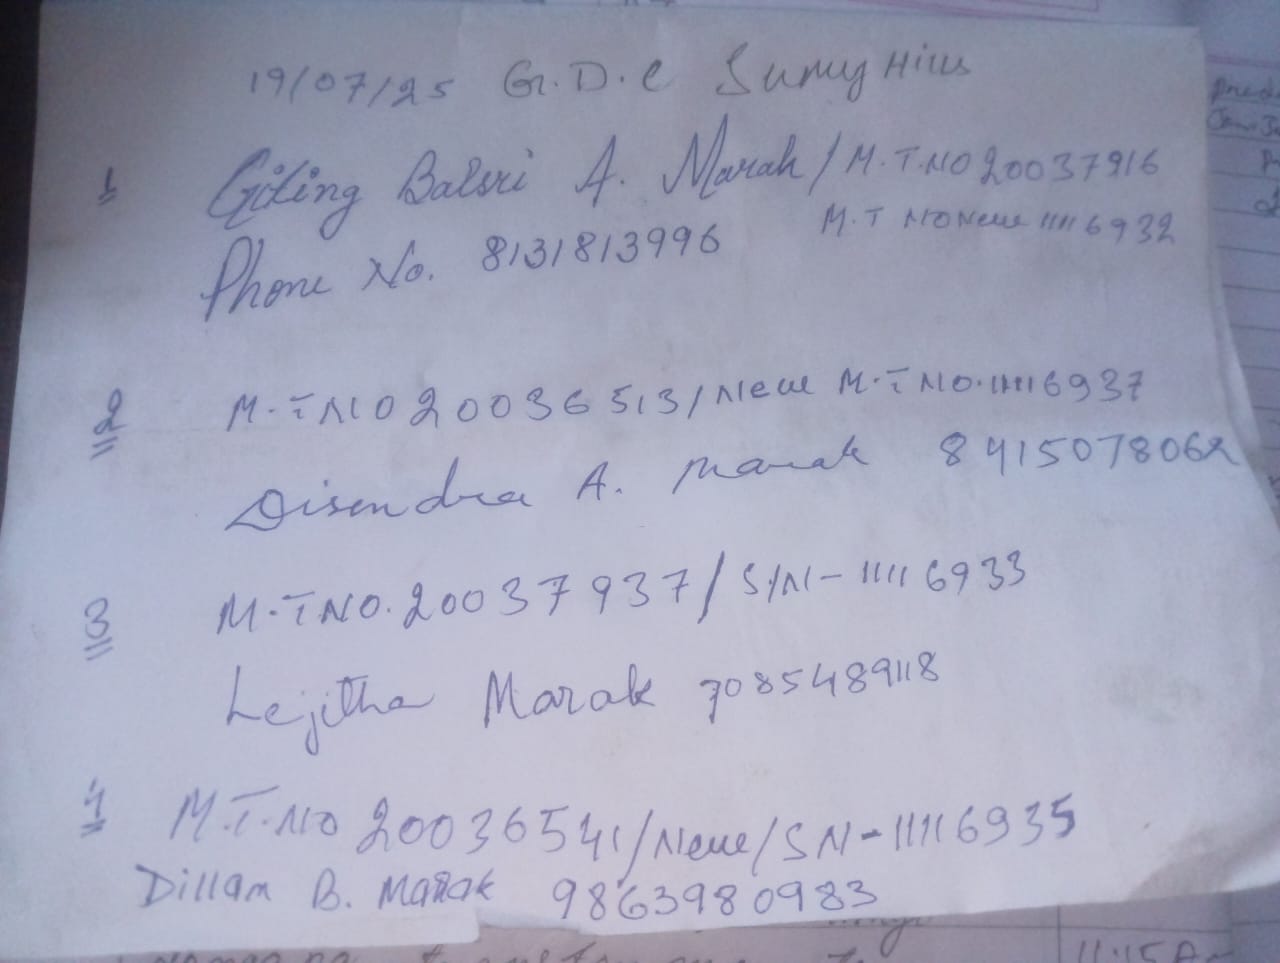 19/07/25 G.D.C Sunny Hills
1 Giting Balsri A. Marak / M.T.NO 20037916
Phone No. 8131813996 M.T NO New 11116932
2 M.T NO 20036513/New M.T NO.11116937
Disendra A. Marak 8415078062
3 M.T NO. 20037937/S/N-11116933
Lejitha Marak 7085489118
4 M.T.NO 20036541/New/SN-11116935
Dillam B. Marak 9863980983
11:15 A